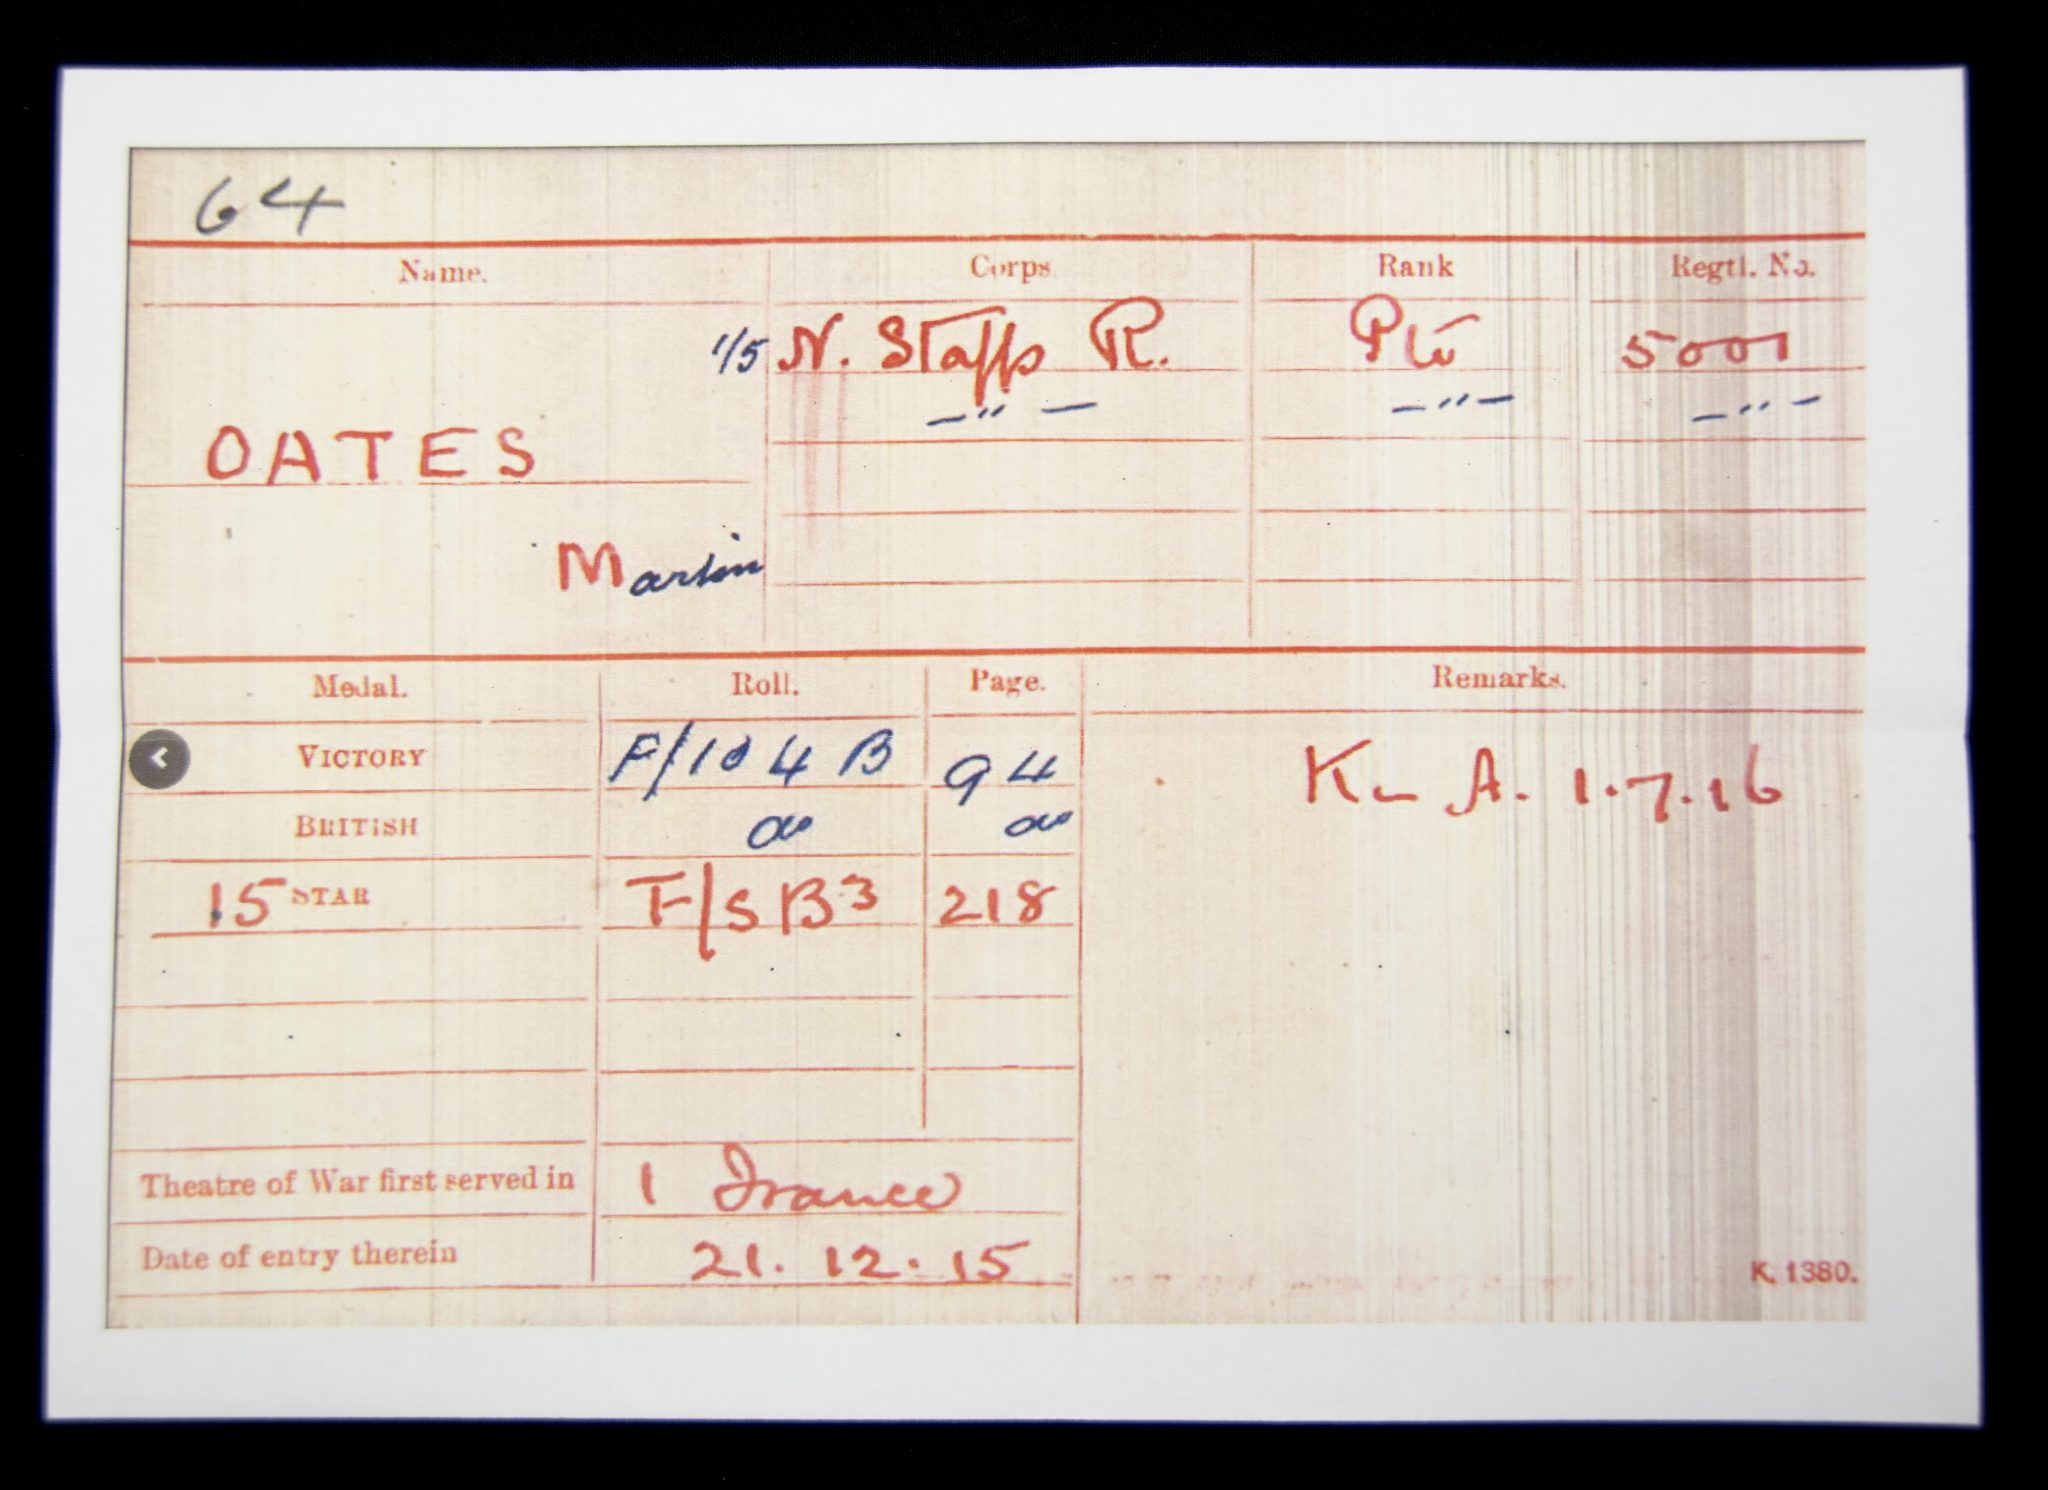 64
Name. Corps. Rank Regtl. No.
1/5 N. Staffs R. Pte 5001
—"— —"— —"—
OATES
Martin
Medal. Roll. Page. Remarks.
VICTORY F/104B 94 K- A. 1.7.16
BRITISH do do
15 STAR F/5B3 218
Theatre of War first served in 1 France
Date of entry therein 21.12.15
K. 1380.